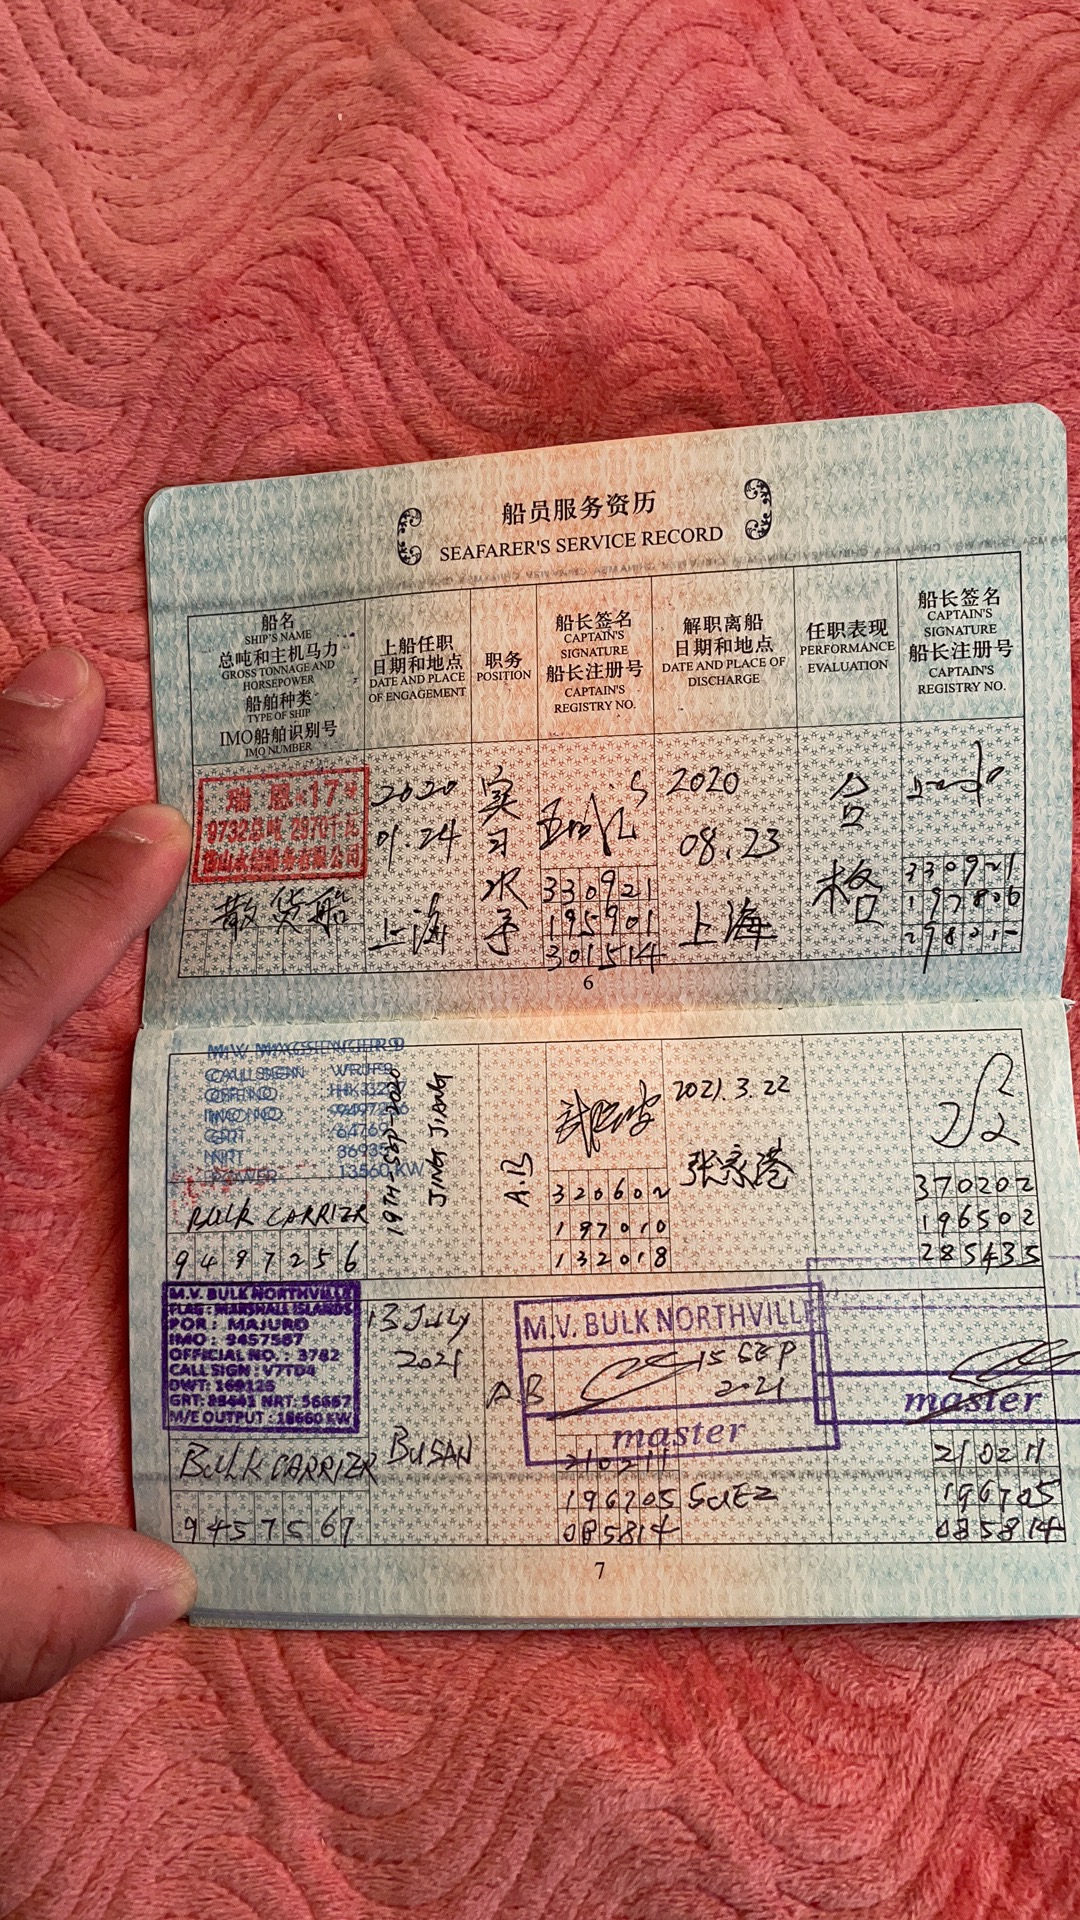 船员服务资历
SEAFARER'S SERVICE RECORD
船名
SHIP'S NAME
总吨和主机马力
GROSS TONNAGE AND
HORSEPOWER
船舶种类
TYPE OF SHIP
IMO船舶识别号
IMO NUMBER
上船任职
日期和地点
DATE AND PLACE
OF ENGAGEMENT
职务
POSITION
船长签名
CAPTAIN'S
SIGNATURE
船长注册号
CAPTAIN'S
REGISTRY NO.
解职离船
日期和地点
DATE AND PLACE OF
DISCHARGE
任职表现
PERFORMANCE
EVALUATION
船长签名
CAPTAIN'S
SIGNATURE
船长注册号
CAPTAIN'S
REGISTRY NO.
瑞 恩 17
9732总吨 2970千瓦
散货船
2020
01.24
上海
实习水手
330921
195901
301514
2020
08.23
上海
合格
330921
6
CALL SIGN WRJF9
GRT 64769
NRT
POWER 13560 KW
BULK CARRIER
9497256
19TH-SEP-2020
JING JIANG
A.B
320602
197010
132018
2021.3.22
张家港
370202
196502
285435
M.V. BULK NORTHVILLE
FLAG : MARSHALL ISLANDS
POR : MAJURO
IMO : 9457567
OFFICIAL NO. : 3782
CALL SIGN : V7TD4
DWT: 169126
GRT: NRT: 56667
M/E OUTPUT : 18660 KW
BULK CARRIER
9457567
13 July
2021
BUSAN
A.B
M.V. BULK NORTHVILLE
master
210211
196705
085814
15 SEP
2021
SUEZ
master
210211
196705
085814
7